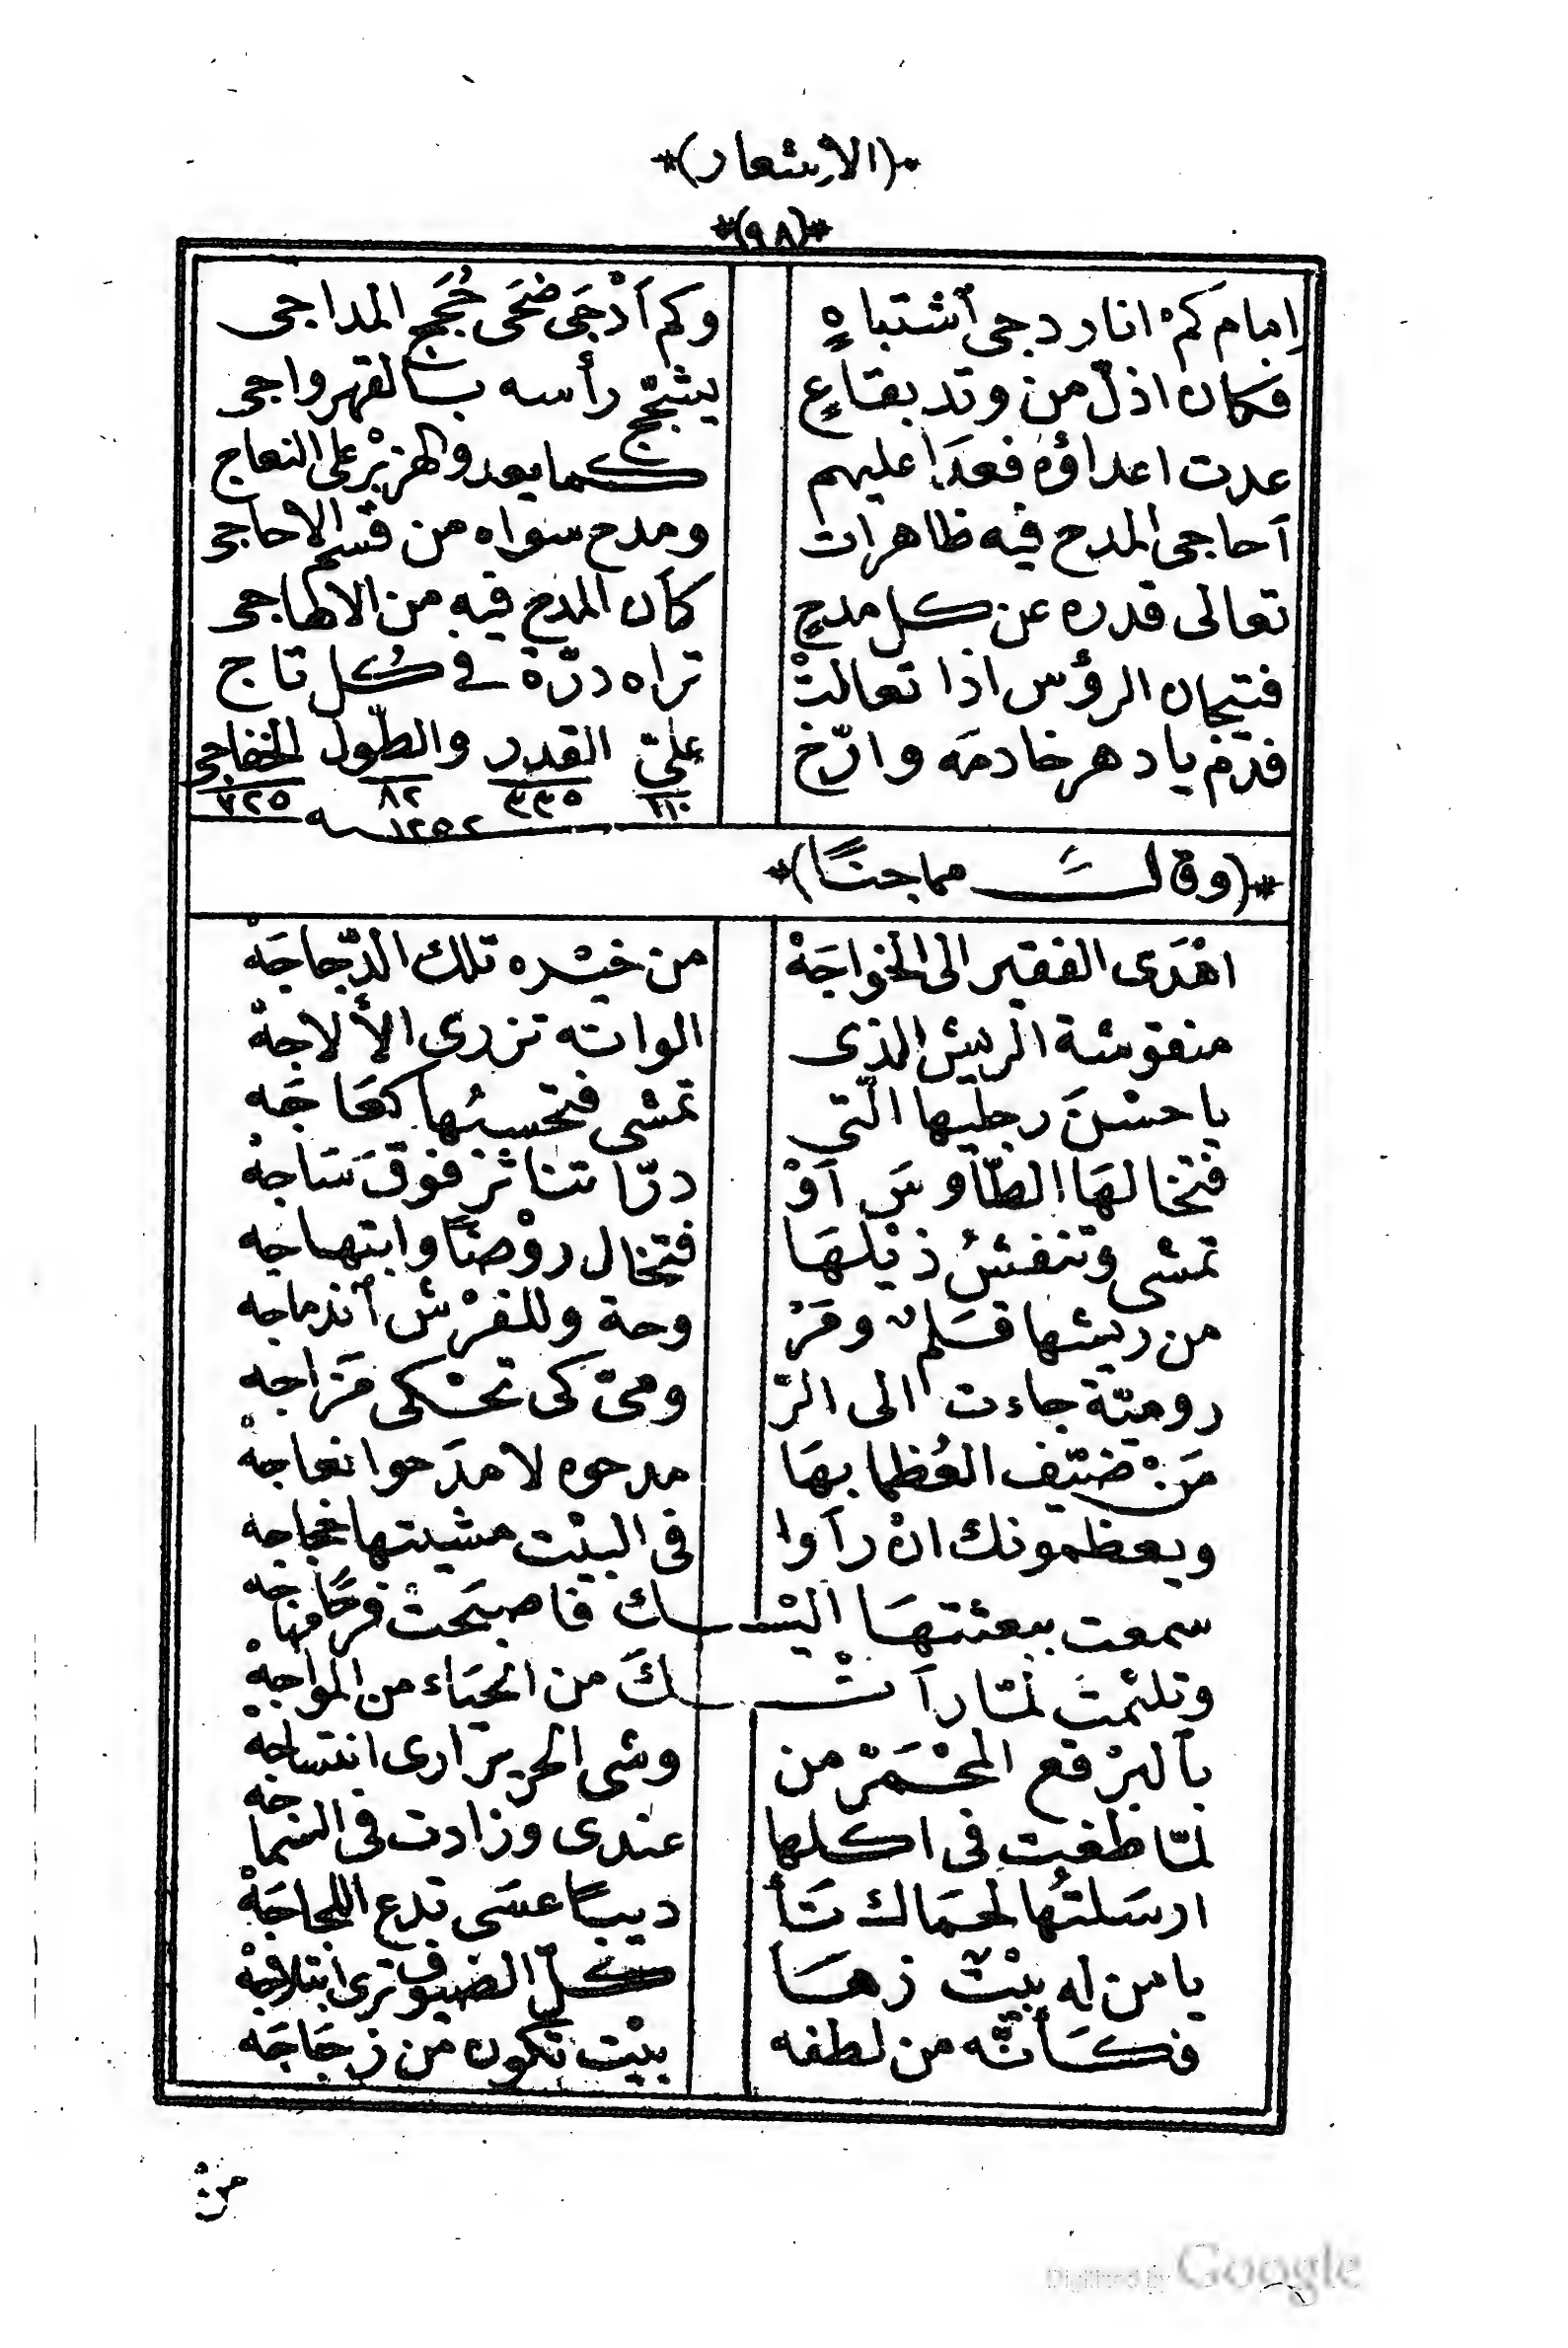 *(الاشعار)*
*(٩٨)*
امام كمْ انار دجى ٱشتباهٍ وكم اَدْجَى ضحَى حُجَج المداجى
فكان اذلّ من وتد بقاعٍ يشجّج رأسه بالقهر واجى
عدت اعداؤه فعدَا عليهم كما يعدو الهزبْر على النعاج
اَحاجى المدح فيه ظاهرات ومدح سواه من قسم الاحاجى
تعالى قدره عن كل مدحٍ كأن المدح فيه من الاهاجى
فتيجان الرؤس اذا تعالتْ تراه درّة فى كُل تاج
فدم يا دهر خادمَه وارّخ علىّ القدر والطّول الخفاجى
١١٠ ٣٣٥ ٨٢ ٧٢٥
سنه ١٢٥٢
*(وقالَ مماجنًا)*
اهْدَى الفقير الى الخواجَهْ من خيْره تلك الدّجاجَهْ
منقوشة الريش الذى الوانه تزرى الألاجهْ
يا حسْنَ رجليها الّتى تمشى فتحسبُها كعاجَه
فتخالهَا الطّاوسَ اَوْ درّا تناثرْ فوقَ سَاجهْ
تمشى وتنفشُ ذيْلهَا فتخال روْضًا وابتهاجه
من ريشها قَلم ومَرْ وحة وللفرْش ٱندماجه
روميّة جاءت الى الرّ ومىّ كى تحْكى مَزاجه
مَنْ ضيّف العُظما بهَا مدحوه لا مدَحوا نعاجهْ
ويعظمونك انْ رأوا فى البيْت مشيتها
سمعت ببعثتهَا اليْـك فاصبَحتْ فرحًا
وتلثمتْ لمّا رأتْـكَ من الحيَاء من المواجهْ
بٱلبرْقع المحْمَرْ من وشى الحرير ارى انتساجهْ
لمّا طغت فى اكلها عندى وزادت فى السماجه
ارسَلتُها لحمَاك تَأْ ديبًا عسَى تدع اللجاجَهْ
يا من له بيْت زهَا كلّ الضيوف ترى
فكَأنّه من لطفه بيْت تكون من زجَاجَه
منْ
Digitized by Google